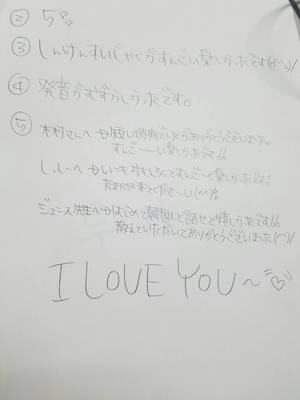 ② 5
③ しんけんすいじゃくがすんごい楽しかったです(^^)/
④ 発音がむずかしかったです。
⑤
木村さんへ 短い時間でしたがありがとうございました。
すんごーーい楽しかったです
しぃしぃへ いつもおもしろくてすんごーく楽しかったです
またぜひ来てくださーい(^^)
ジュニス先生へ はじめて韓国人と話せて嬉しかったです
教えていただいてありがとうございました(^^)/
I LOVE YOU～